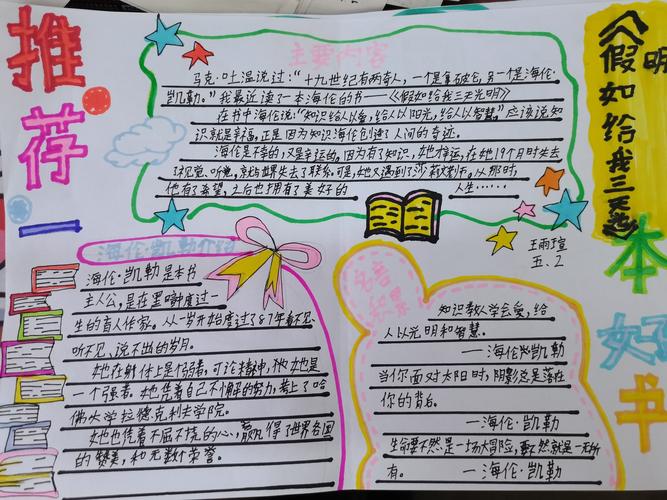 推荐一
本好书
《假如给我三天光明》
主要内容
马克·吐温说过：“十九世纪有两奇人，一个是拿破仑，另一个是海伦·
凯勒。”我最近读了一本海伦的书——《假如给我三天光明》
在书中海伦说：“知识给人以爱，给人以阳光，给人以智慧。”应该说知
识就是幸福，正是因为知识海伦创造了人间的奇迹。
海伦是不幸的，又是幸运的，因为有了知识，她幸运，在她19个月时失去
了视觉、听觉，就与世界失去了联系，可是，她又遇到了莎莉文老师。从那时，
他有了希望，之后也拥有了美好的 人生……
王雨瑄
五．2
海伦·凯勒介绍
海伦·凯勒是本书
主人公，是在黑暗中度过一
生的盲人作家。从一岁开始度过了87年看不见、
听不见、说不出的岁月。
她在身体上是个弱者，可论精神，她是
一个强者。她凭着自己不懈的努力，考上了哈
佛大学拉德克利夫学院。
她也凭着不屈不挠的心，赢得了世界各国
的赞美，和无数个荣誉。
名言
积累
知识教人学会爱，给
人以光明和智慧。
——海伦·凯勒
当你面对太阳时，阴影总是落在
你的背后。
——海伦·凯勒
生命要不然是一场大冒险，要不然就是一无所
有。 ——海伦·凯勒